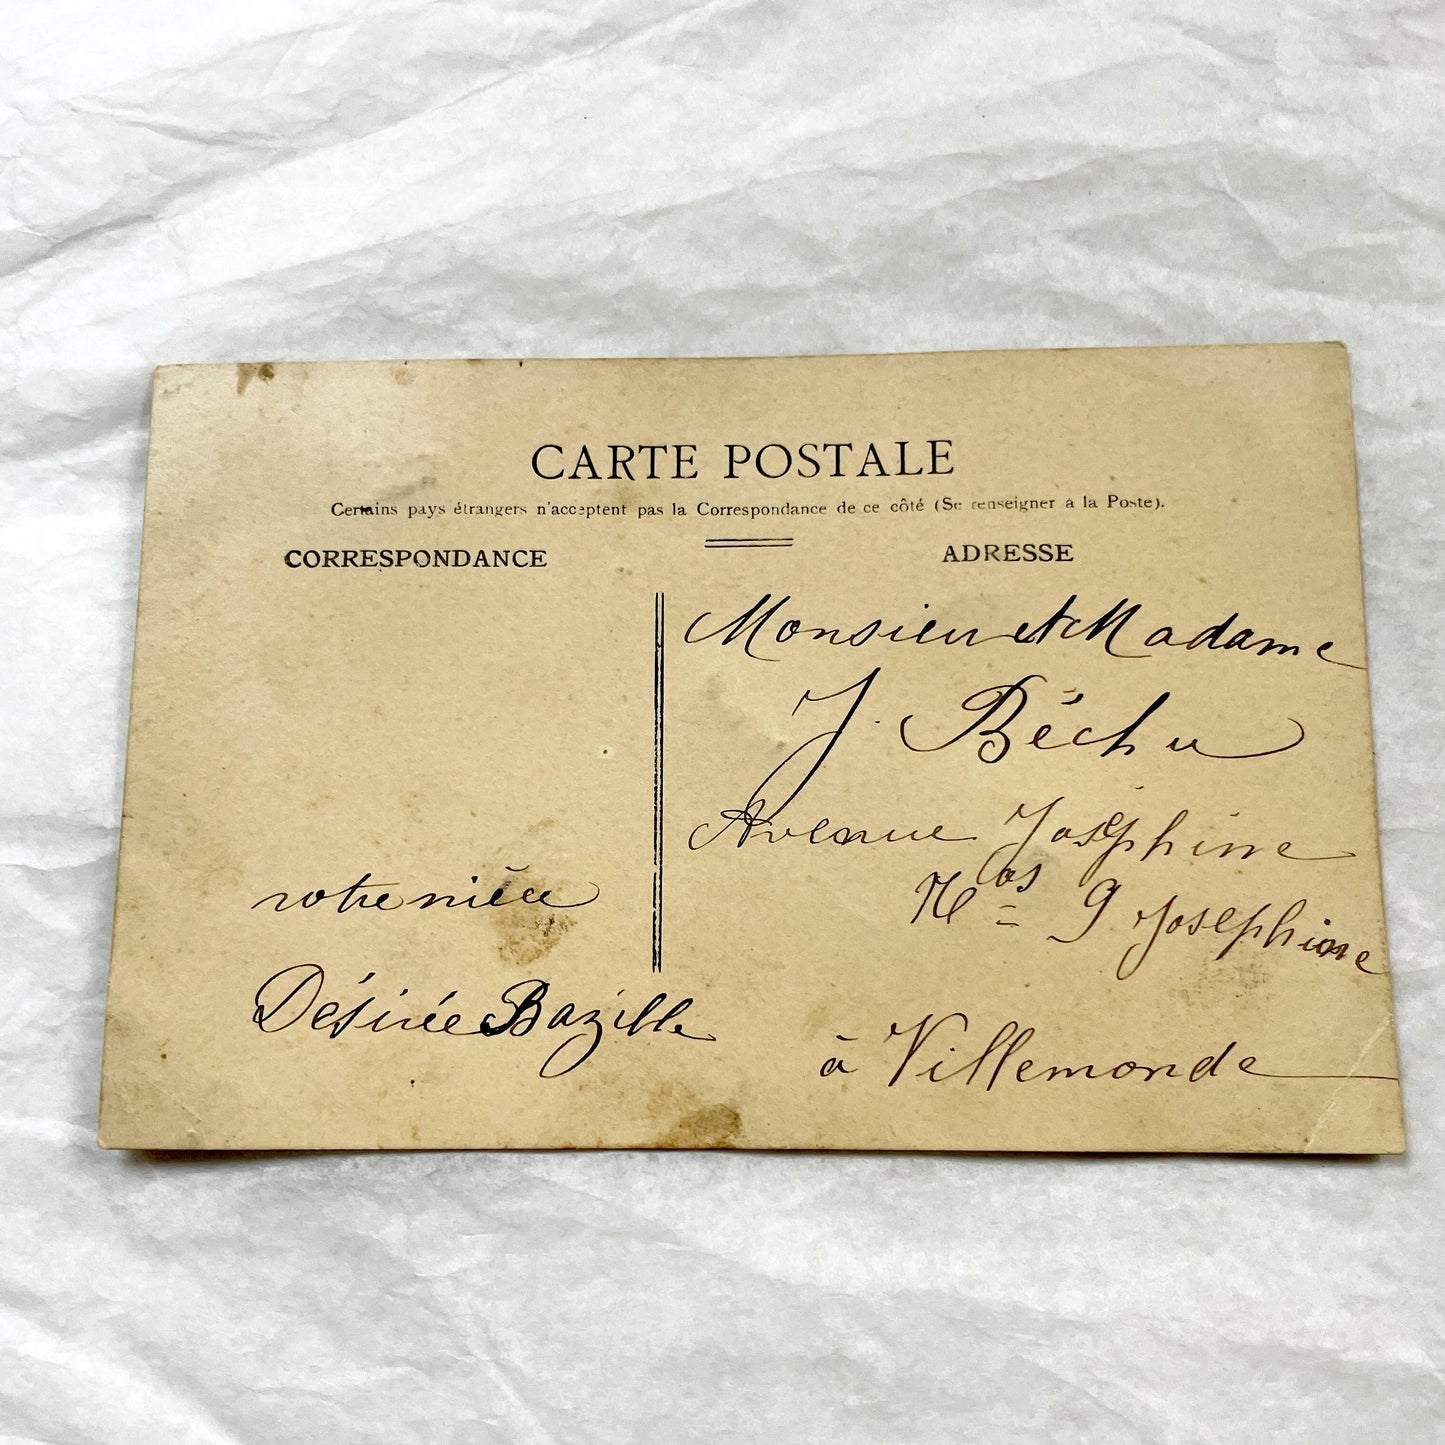 CARTE POSTALE
Certains pays étrangers n'acceptent pas la Correspondance de ce côté (Se renseigner à la Poste).
CORRESPONDANCE
votre nièce
Désirée Bazille
ADRESSE
Monsieur et Madame
J. Béchu
Avenue Joséphine
9 Josephine
à Villemonde